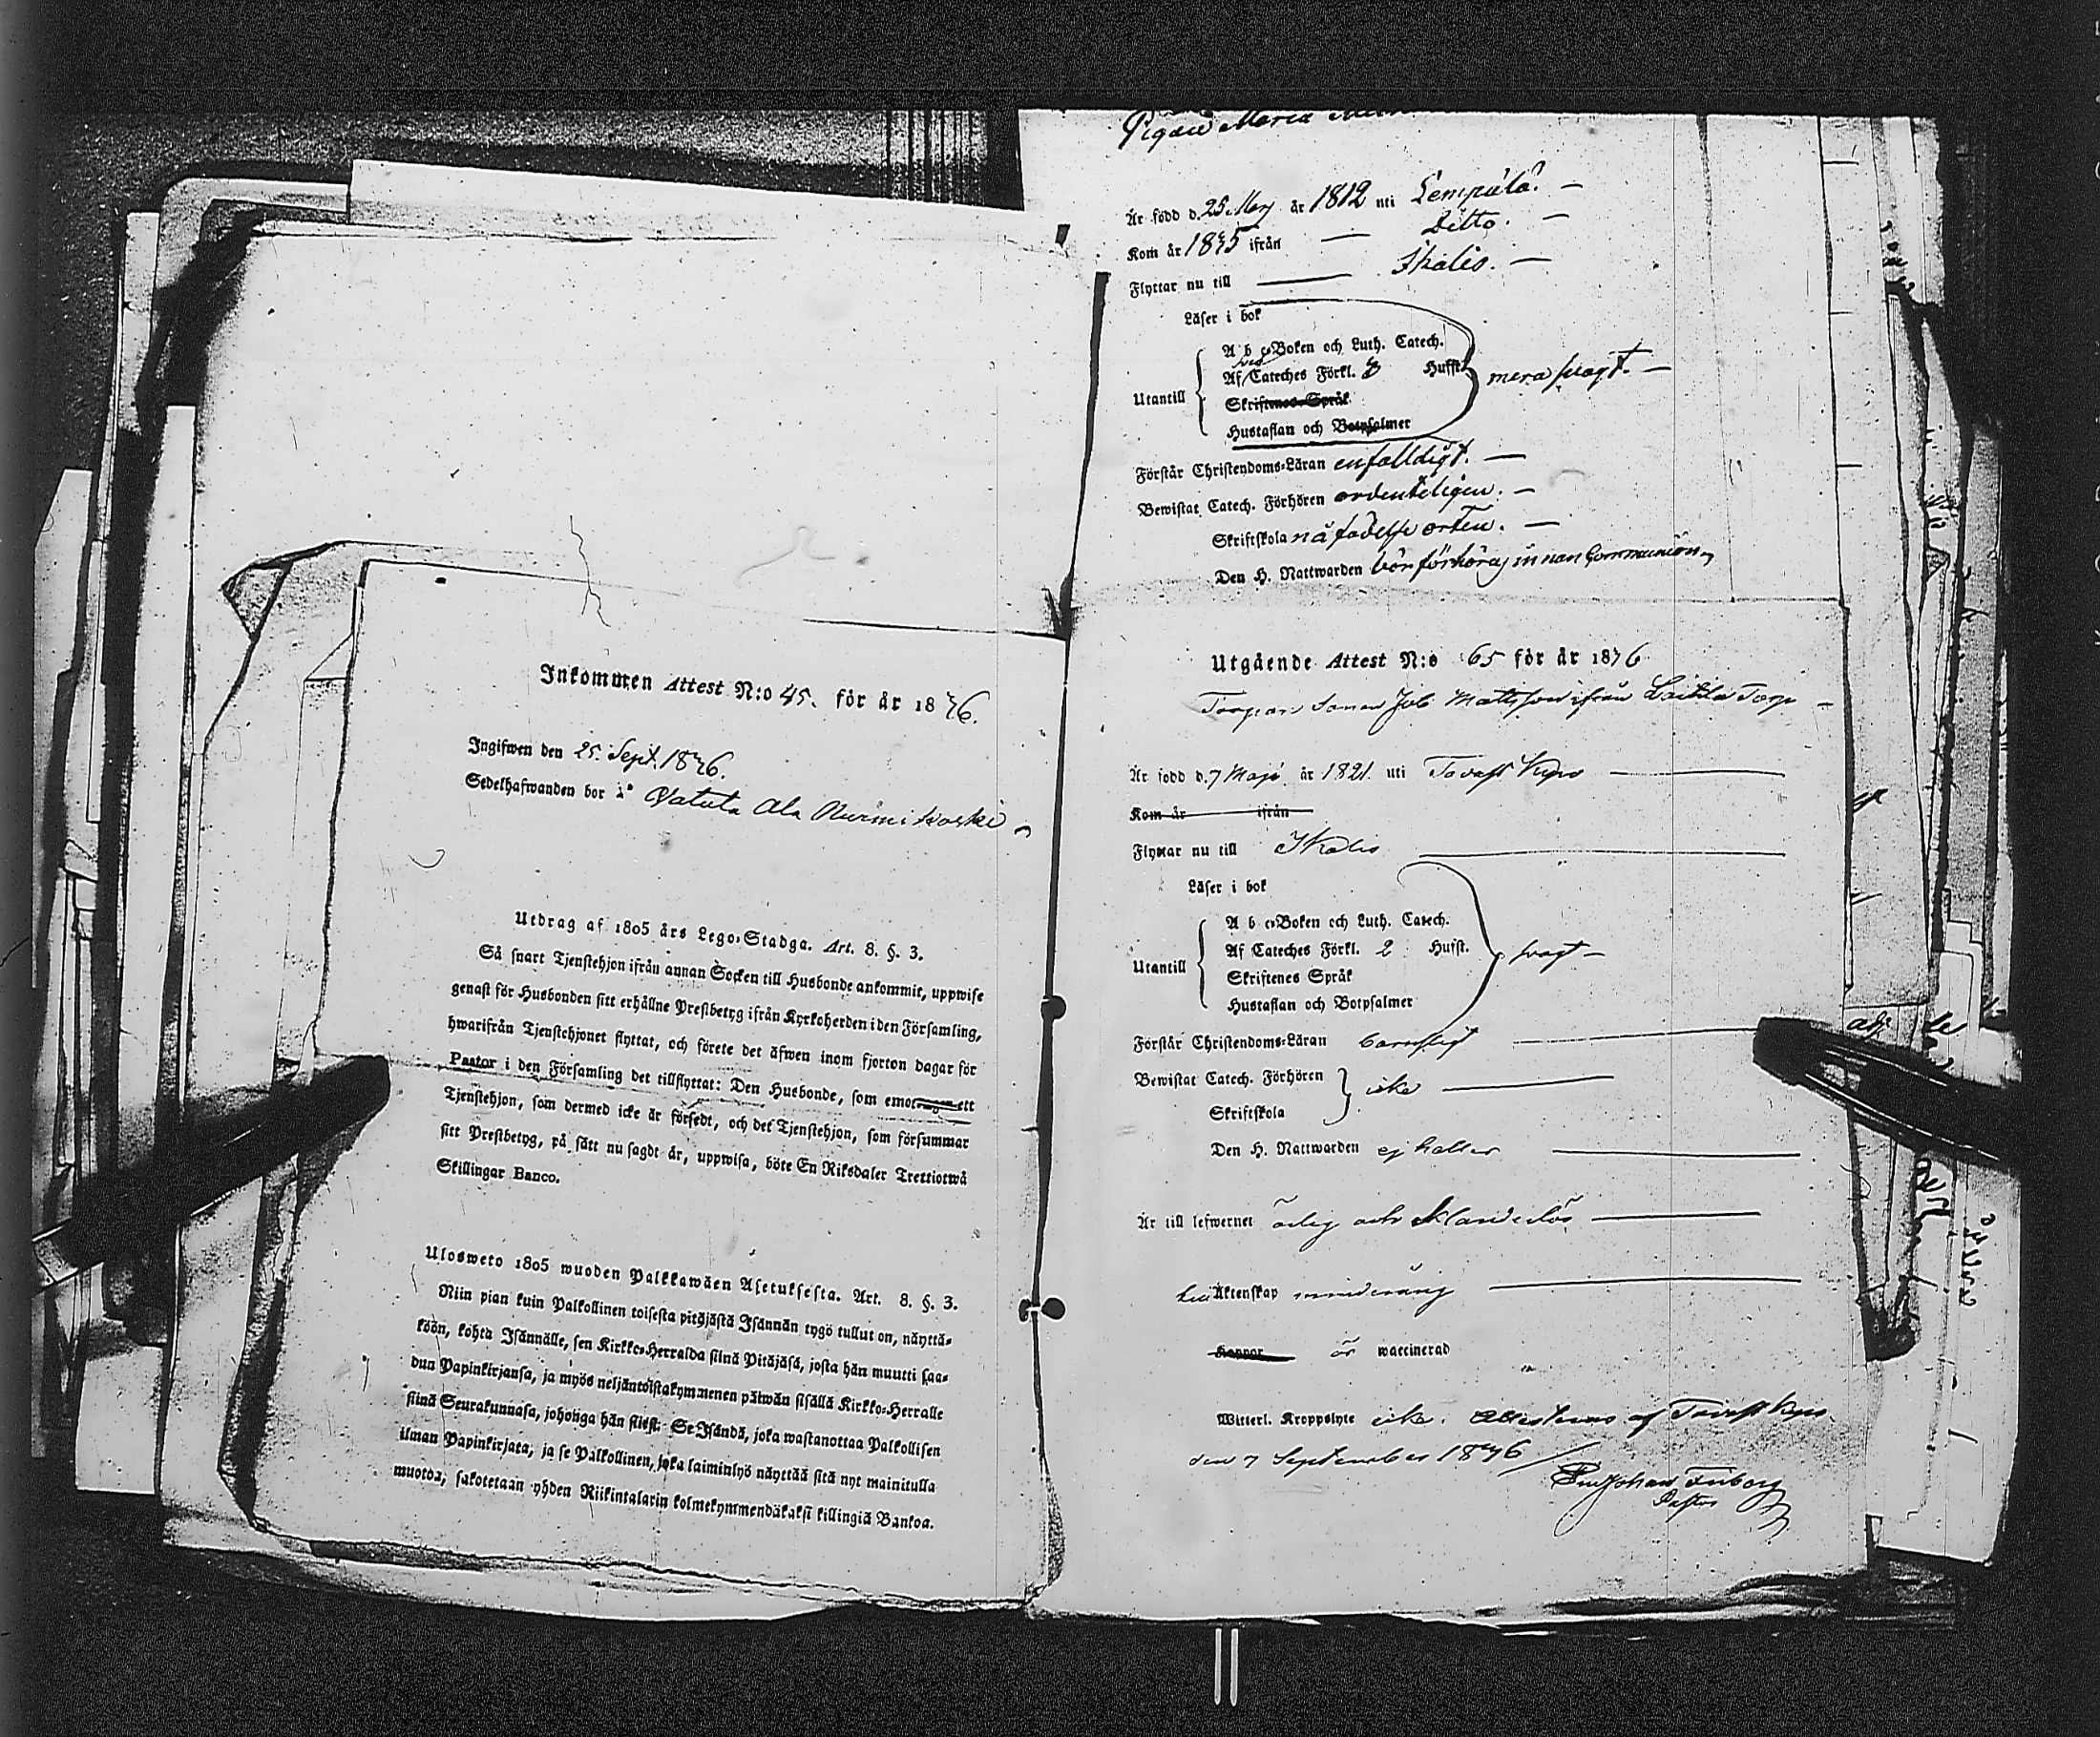 Inkommen Attest N:o 45. för år 1846.
Ingifwen den 25. Sept. 1846.
Sedelhafwanden bor i Vatula Ala Nurmikoski
Utdrag af 1805 års Lego-Stadga. Art. 8. §. 3.
Så snart Tjenstehjon ifrån annan Socken till Husbonde ankommit, uppwise
genast för Husbonden sitt erhållne Prestbetyg ifrån Kyrkoherden i den Församling,
hwarifrån Tjenstehjonet flyttat, och förete det äfwen inom fjorton dagar för
Pastor i den Församling det tillflyttat: Den Husbonde, som emottager ett
Tjenstehjon, som dermed icke är försedt, och det Tjenstehjon, som försummar
sitt Prestbetyg, på sätt nu sagdt är, uppwisa, böte En Riksdaler Trettiotwå
Skillingar Banco.
Ulosweto 1805 wuoden Palkkawäen Asetuksesta. Art. 8. §. 3.
Niin pian kuin Palkollinen toisesta pitäjästä Isännän tygö tullut on, näyttä-
köön, kohta Isännälle, sen Kirkko-Herralda siinä Pitäjäsä, josta hän muutti saa-
dun Papinkirjansa, ja myös neljäntoistakymmenen päiwän sisällä Kirkko-Herralle
siinä Seurakunnasa, johonga hän siirst: Se Isändä, joka wastanottaa Palkollisen
ilman Papinkirjata, ja se Palkollinen, joka laiminlyö näyttää sitä nyt mainitulla
muotoa, sakotetaan yhden Riikintalarin kolmekymmendäkaksi killingiä Bankoa.
Pigan Maria
Är född d. 25 Maj år 1812 uti Lempälä. —
Kom år 1845 ifrån — Ditto. —
Flyttar nu till — Ikalis. —
Läser i bok
A b c-Boken och Luth. Catech.
Af Cateches Förkl. Hufst.
Utantill mera svagt. —
Skriftenes Språk
Hustaflan och Botpsalmer
Förstår Christendoms-Läran enfalldigt. —
Bewistat Catech. Förhören ordenteligen. —
Skriftskola på födelse orten. —
Den H. Nattwarden bör förhöras innan Communion
Utgående Attest N:o 65 för år 1846
Torpare Sonen Job Mattsson ifrån Torp —
Är född d. 7 Maji år 1821 uti Tavast Kyro
Kom år ifrån
Flyttar nu till Ikalis
Läser i bok
A b c-Boken och Luth. Catech.
Af Cateches Förkl. 2 Hufst.
Utantill svagt —
Skriftenes Språk
Hustaflan och Botpsalmer
Förstår Christendoms-Läran barnsligt
Bewistat Catech. Förhören icke
Skriftskola
Den H. Nattwarden ej heller
Är till lefwernet ärlig och Klanderlös
till Äktenskap minderårig
Koppor är waccinerad
Witterl. Kroppslyte icke. Attesteras af Tavast Kyro
den 7 September 1846
Johan Friberg
Pastor